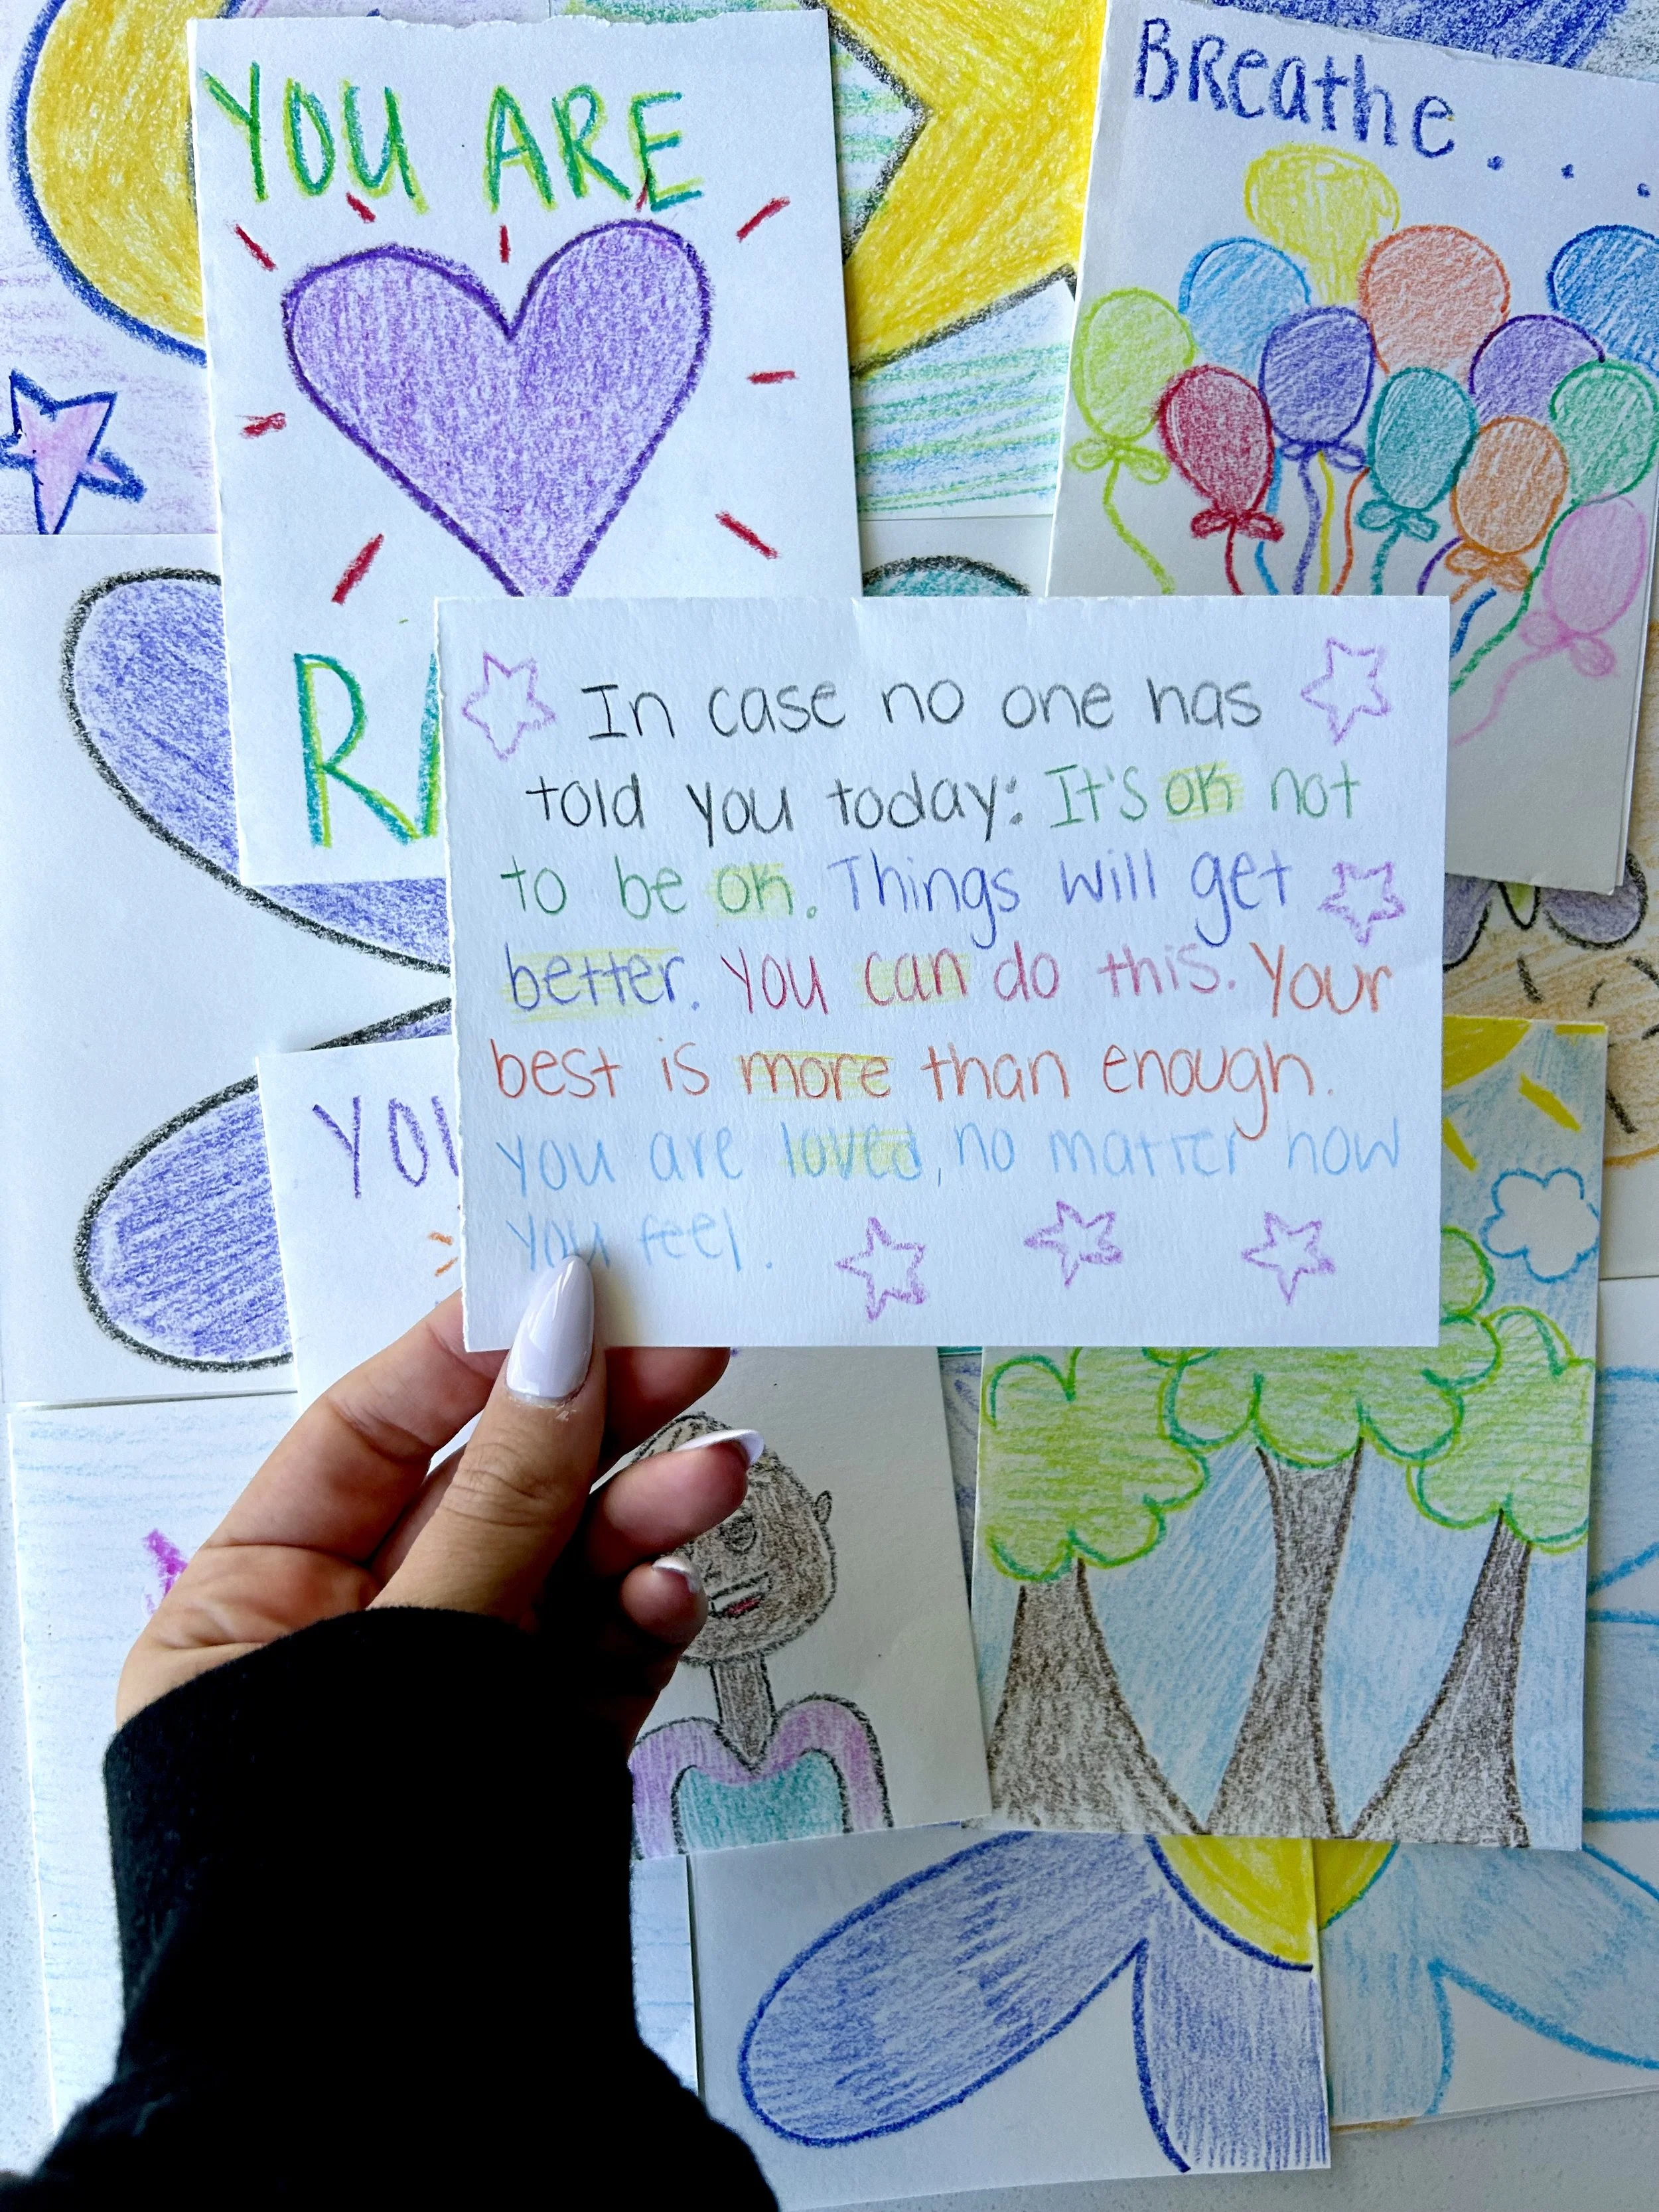 YOU ARE
BReathe...
In case no one has
told you today: It's ok not
to be ok. Things will get
better. You can do this. Your
best is more than enough.
you are loved, no matter how
you feel.